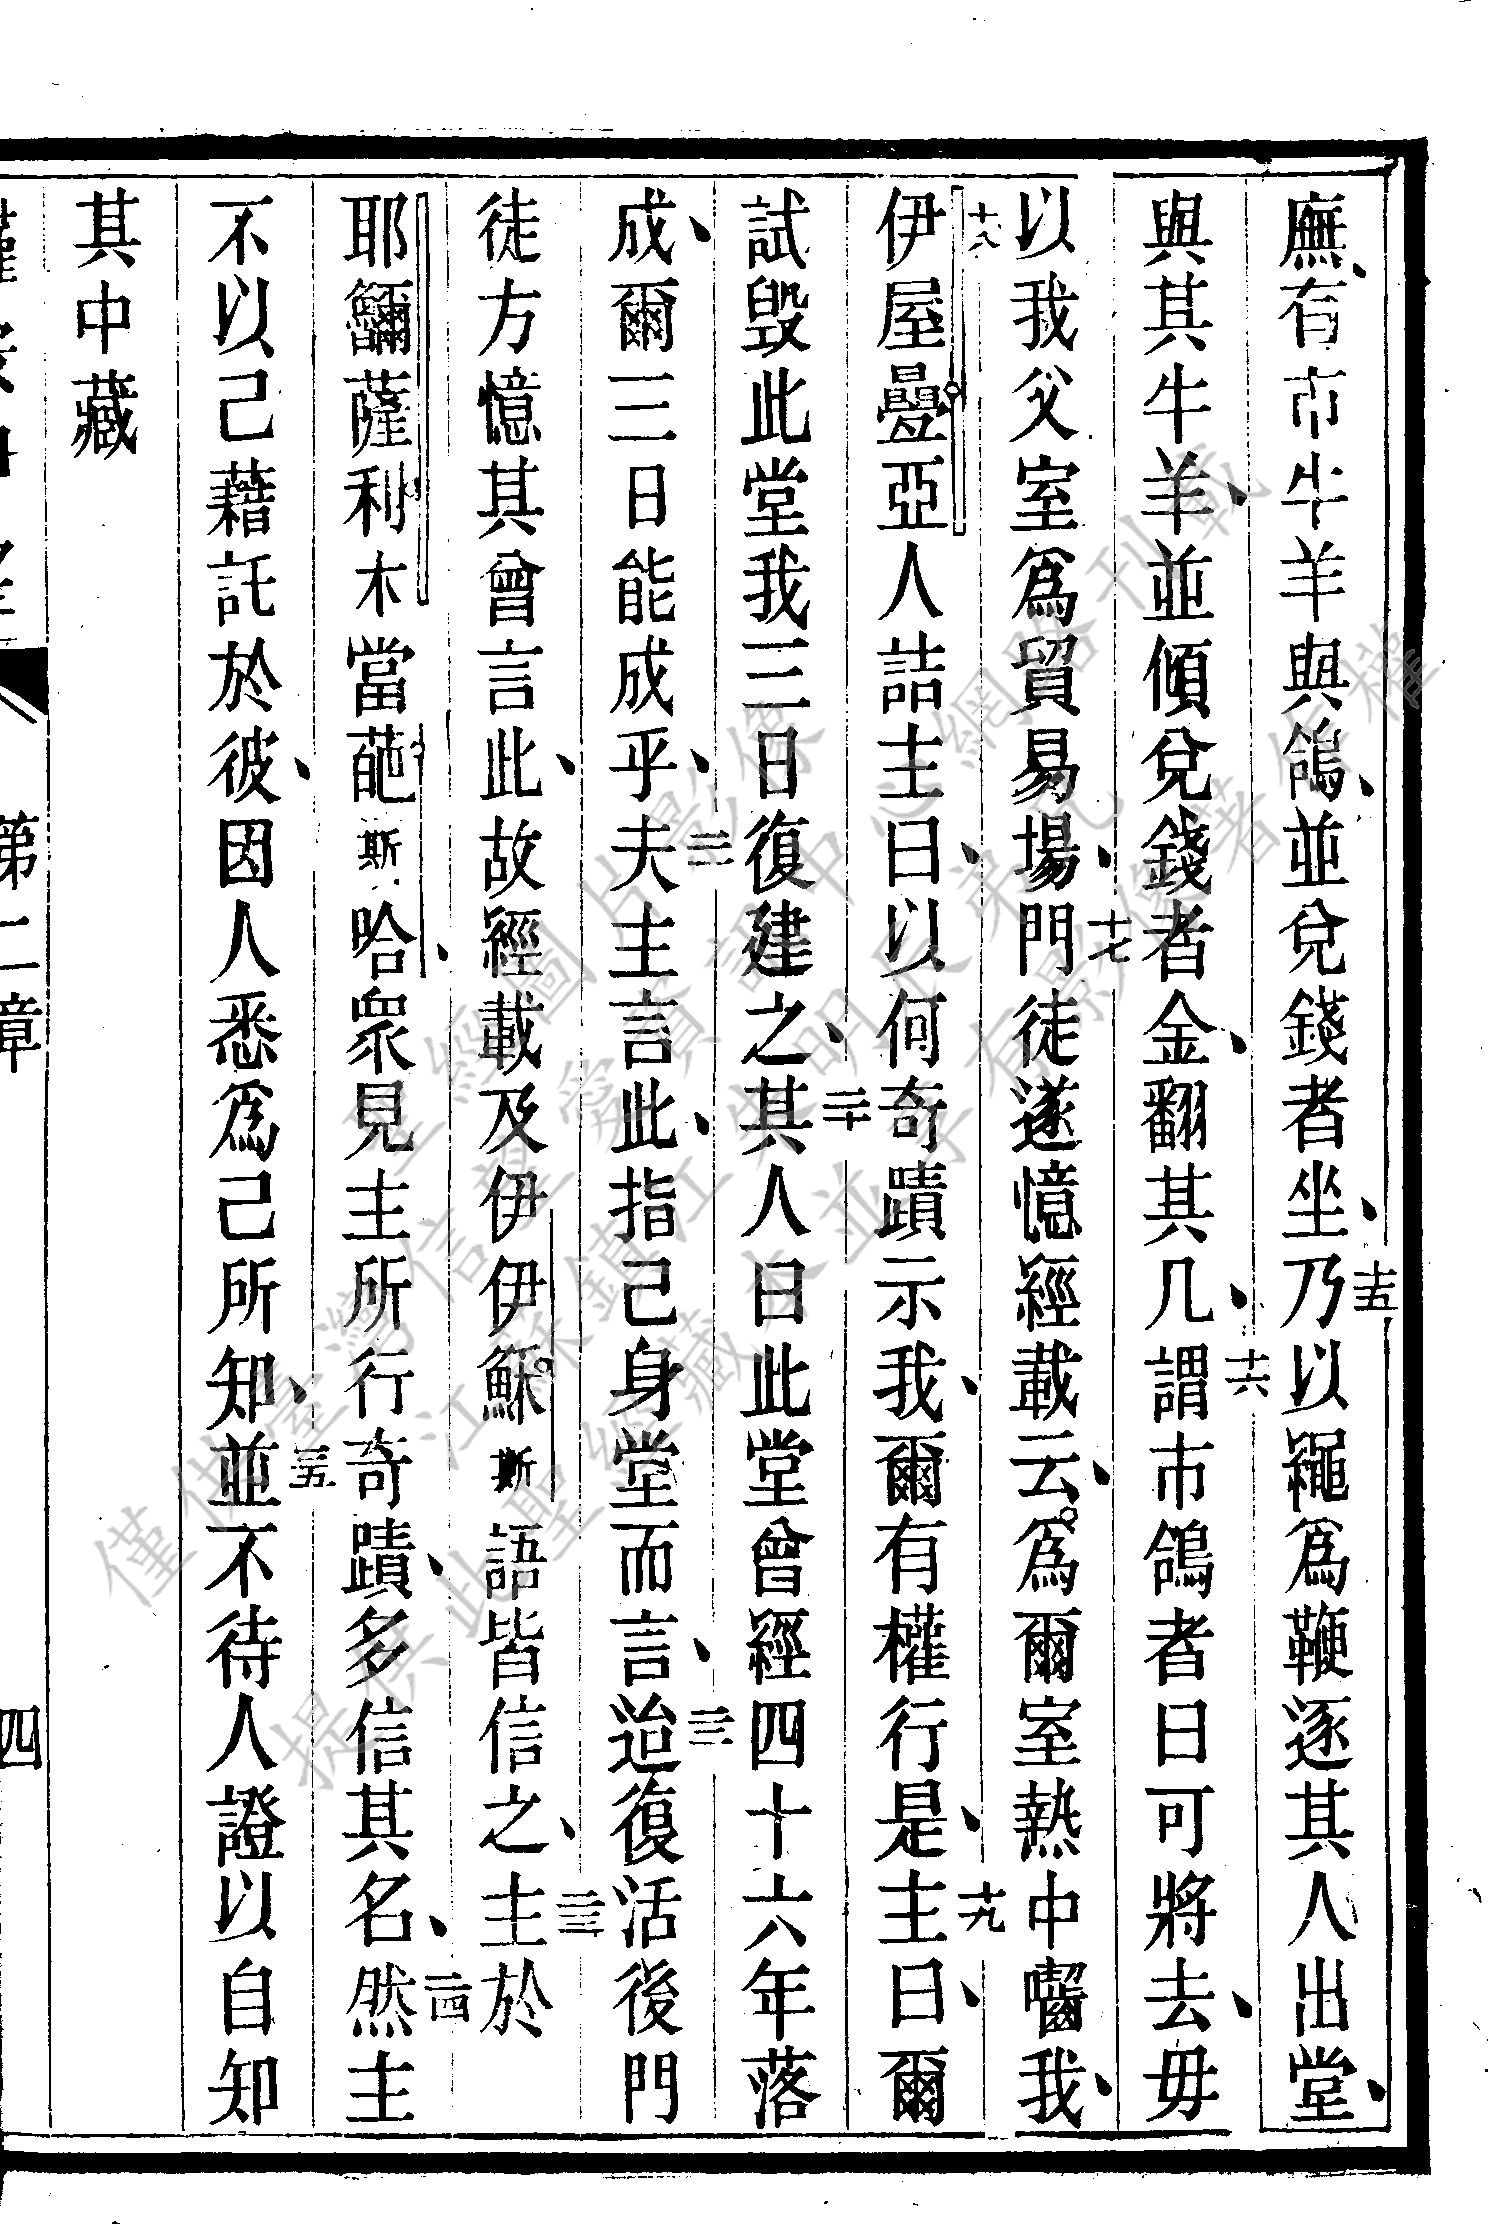 廡、有市牛羊與鴿、並兌錢者坐、十五乃以繩為鞭逐其人出堂、
與其牛羊、並傾兌錢者金、翻其几、十六謂市鴿者曰可將去、毋
以我父室為貿易場、十七門徒遂憶經載云、為爾室熱中囓我、
十八伊屋疊亞人詰主曰、以何奇蹟示我、爾有權行是、十九主曰、爾
試毀此堂我三日復建之、二十其人曰此堂曾經四十六年落
成、爾三日能成乎、二一夫主言此、指己身堂而言、二二迨復活後門
徒方憶其曾言此、故經載及伊伊穌斯語皆信之、二三主於
耶𩼧薩利木當葩斯哈、眾見主所行奇蹟、多信其名、二四然主
不以己藉託於彼、因人悉為己所知、二五並不待人證以自知
其中藏
第二章
四
僅供臺灣信望愛資源中心網路刊載